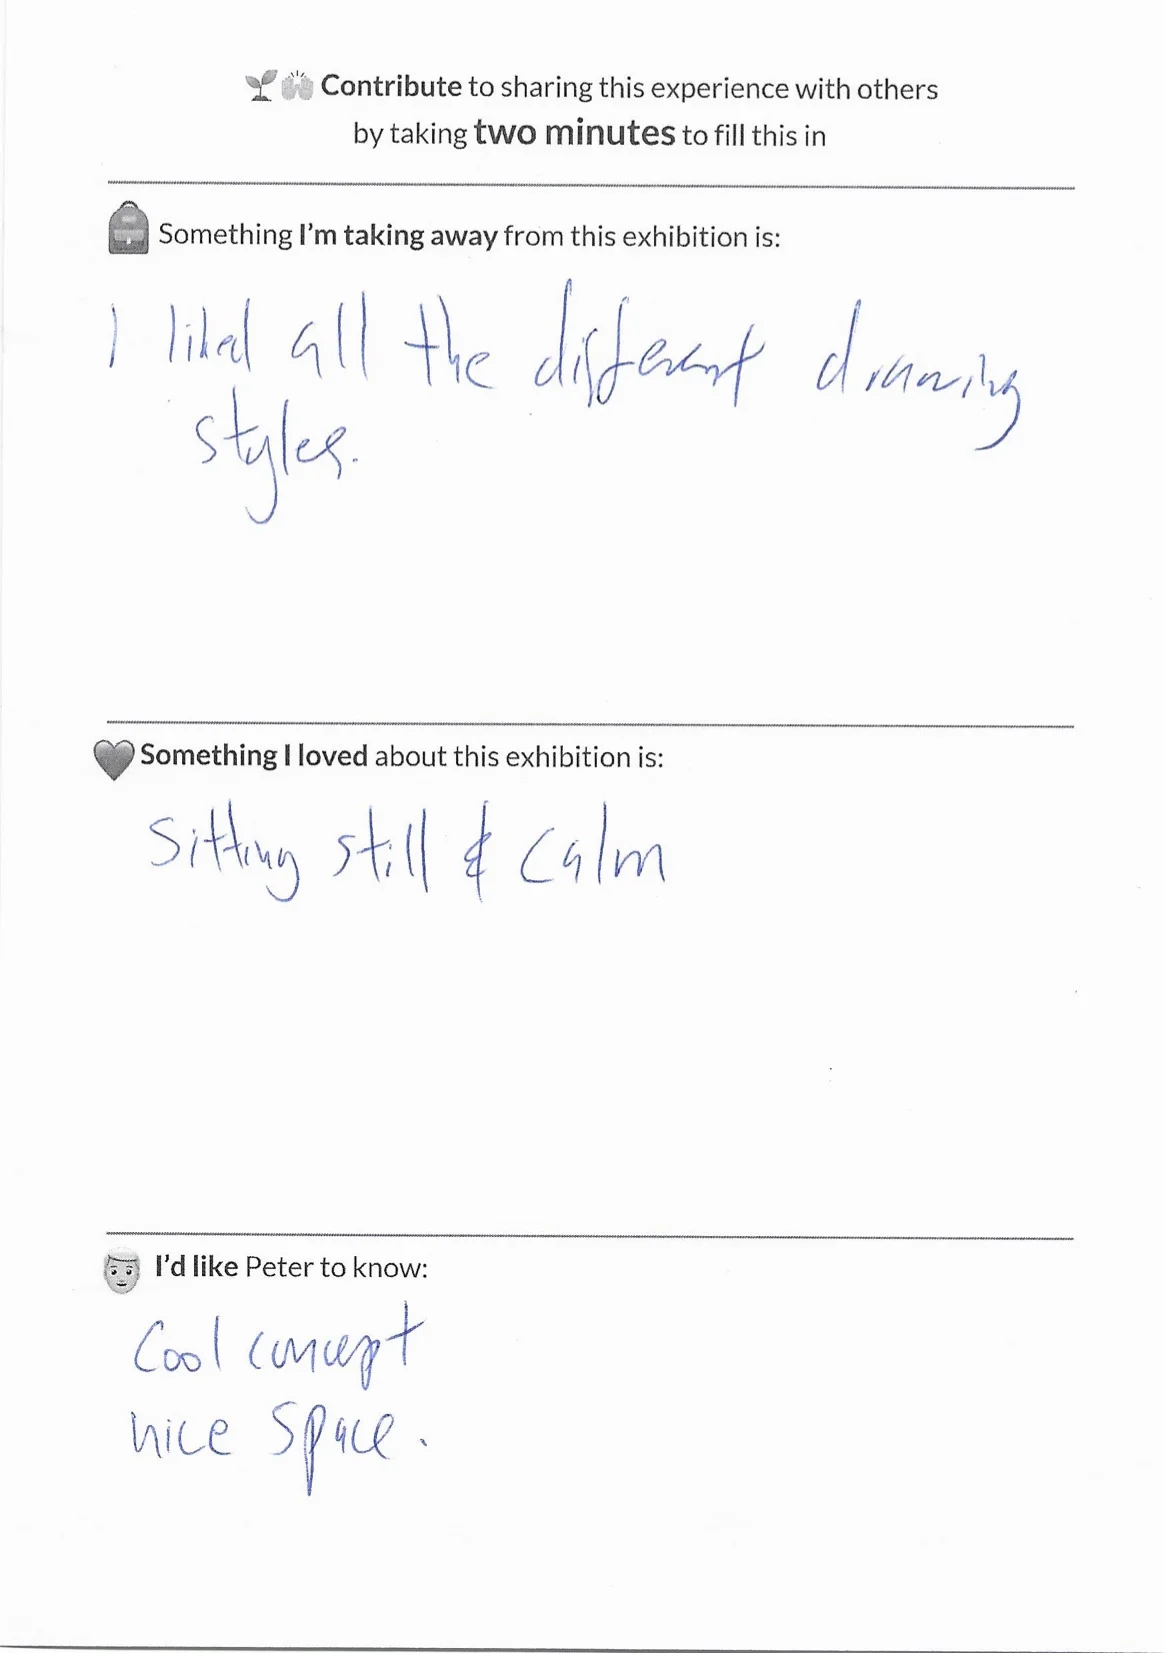 Contribute to sharing this experience with others
by taking two minutes to fill this in
Something I'm taking away from this exhibition is:
I liked all the different drawing
styles.
Something I loved about this exhibition is:
Sitting still & Calm
I'd like Peter to know:
Cool concept
nice space.